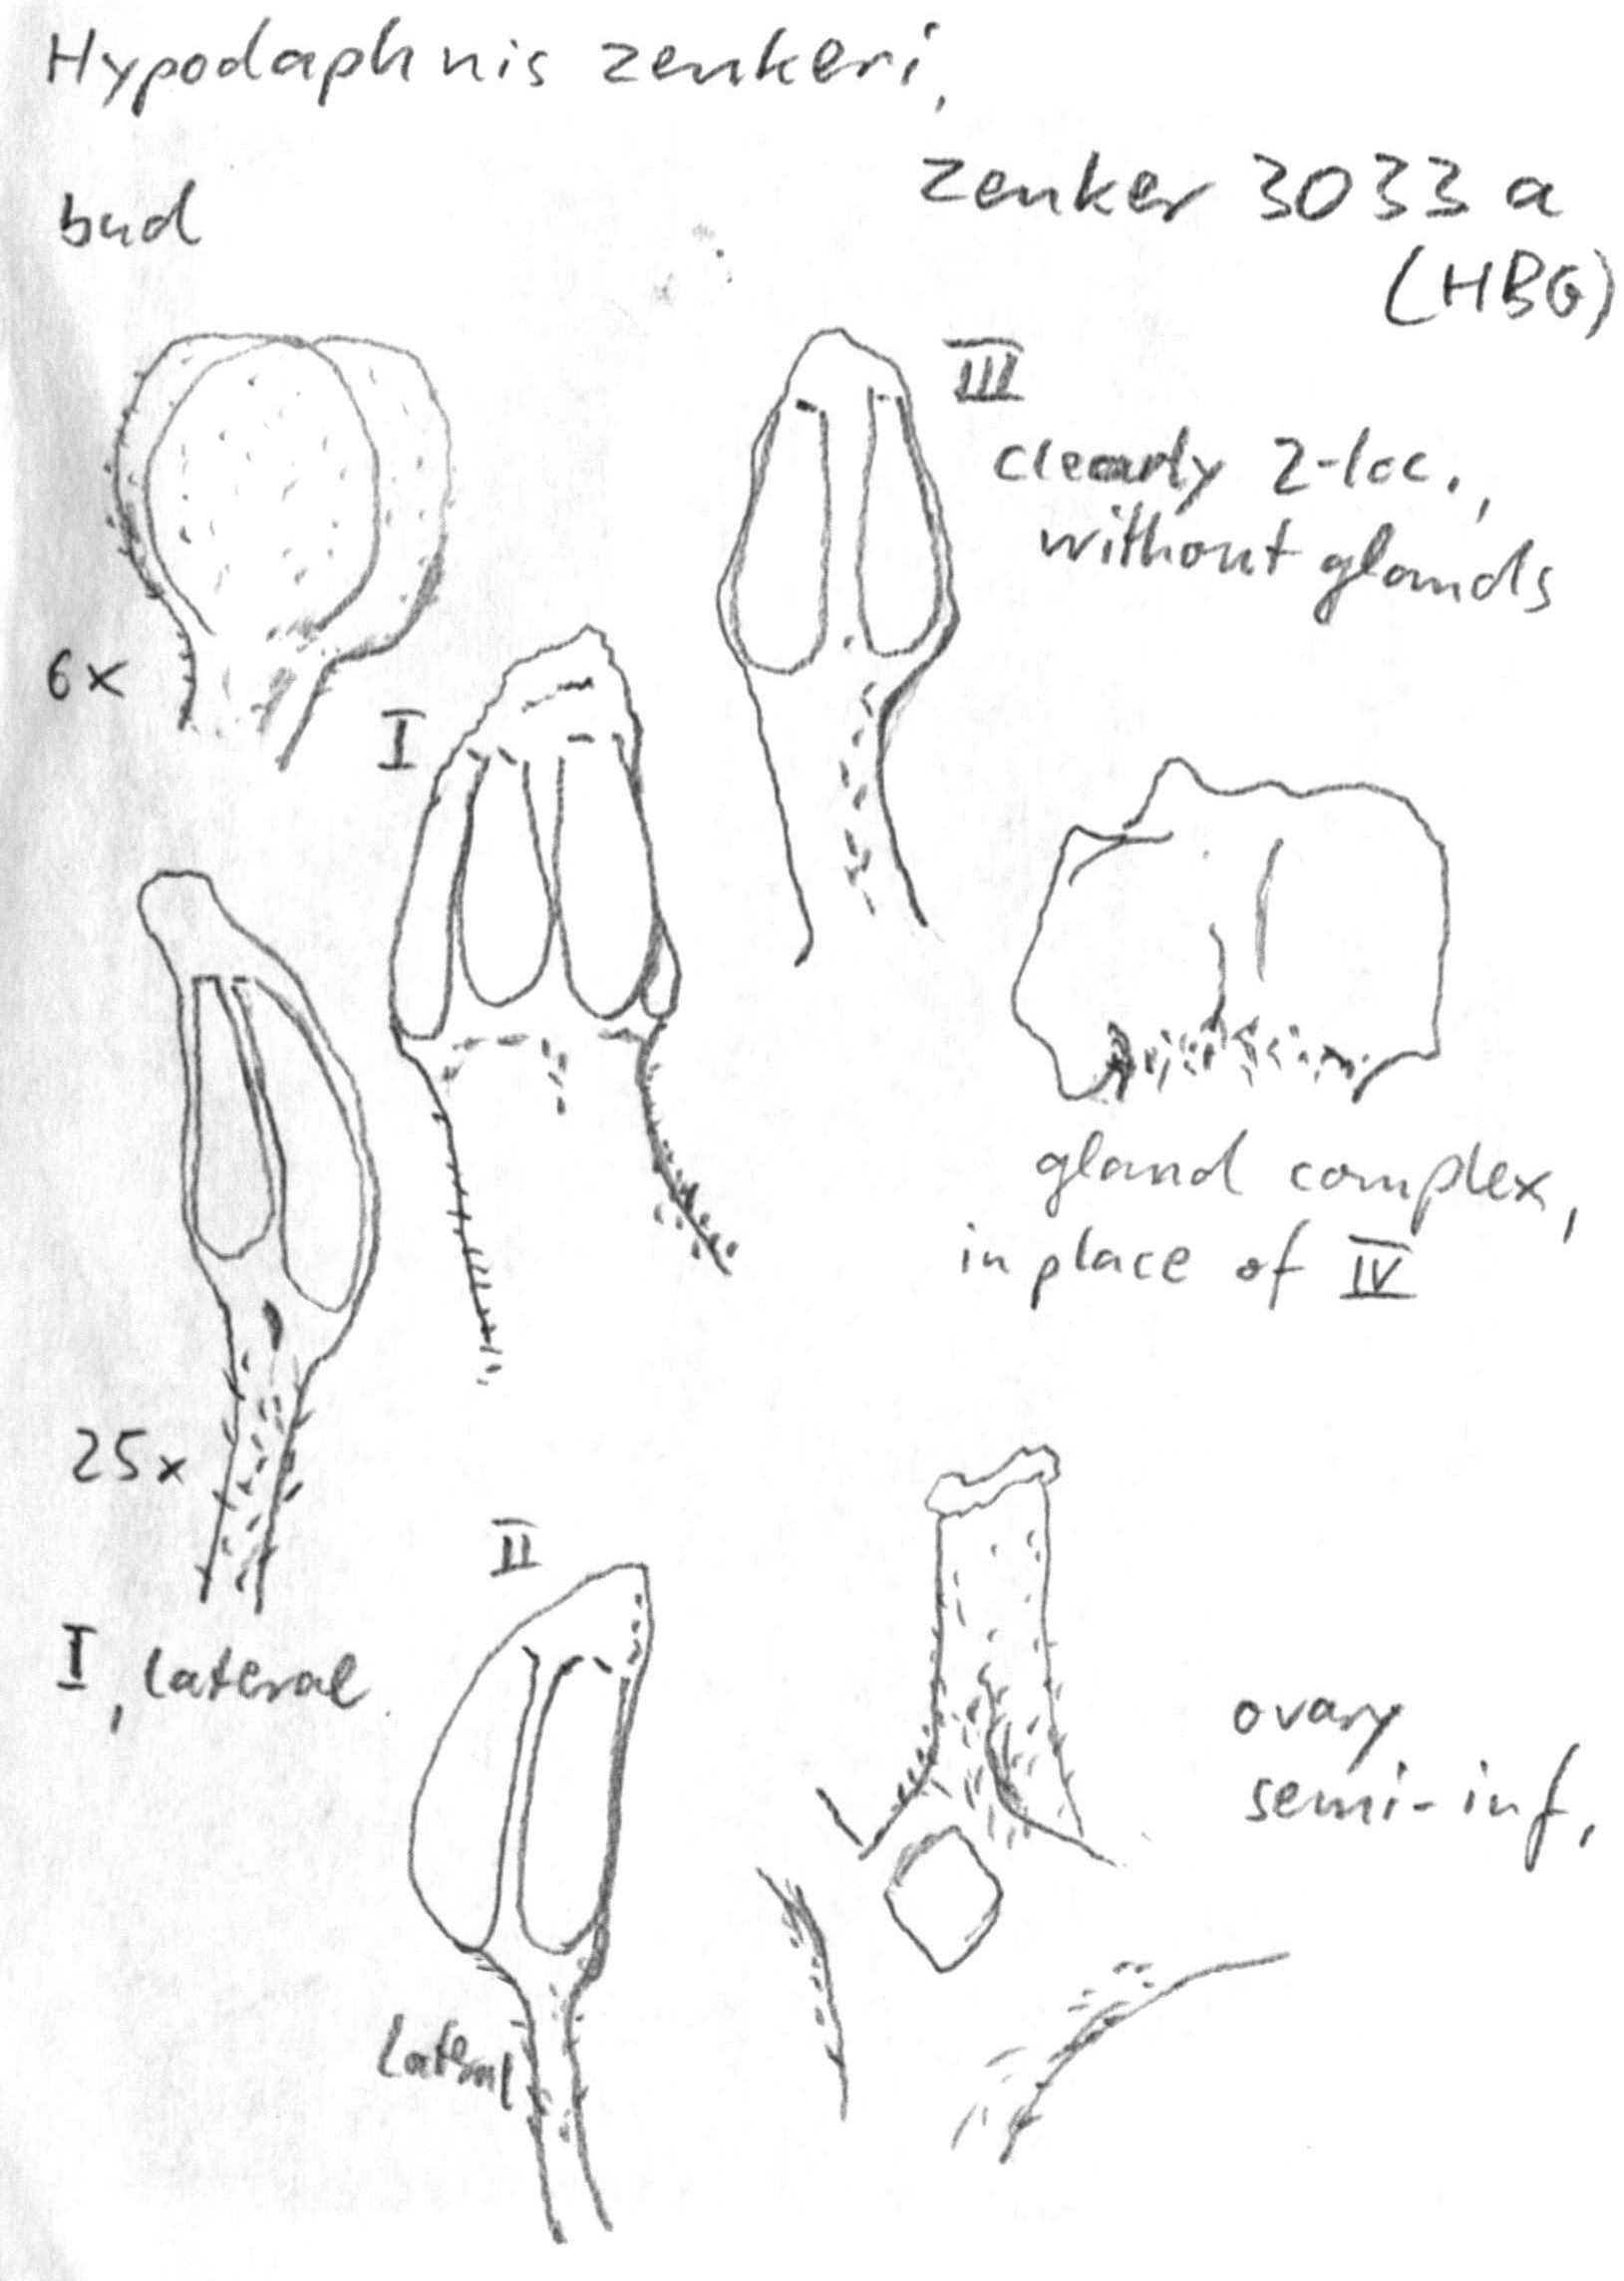 Hypodaphnis zenkeri,
Zenker 3033 a
(HBG)
bud
6x
III
clearly 2-loc.,
without glands
I
gland complex,
in place of IV
25x
I, lateral
II
lateral
ovary
semi-inf.